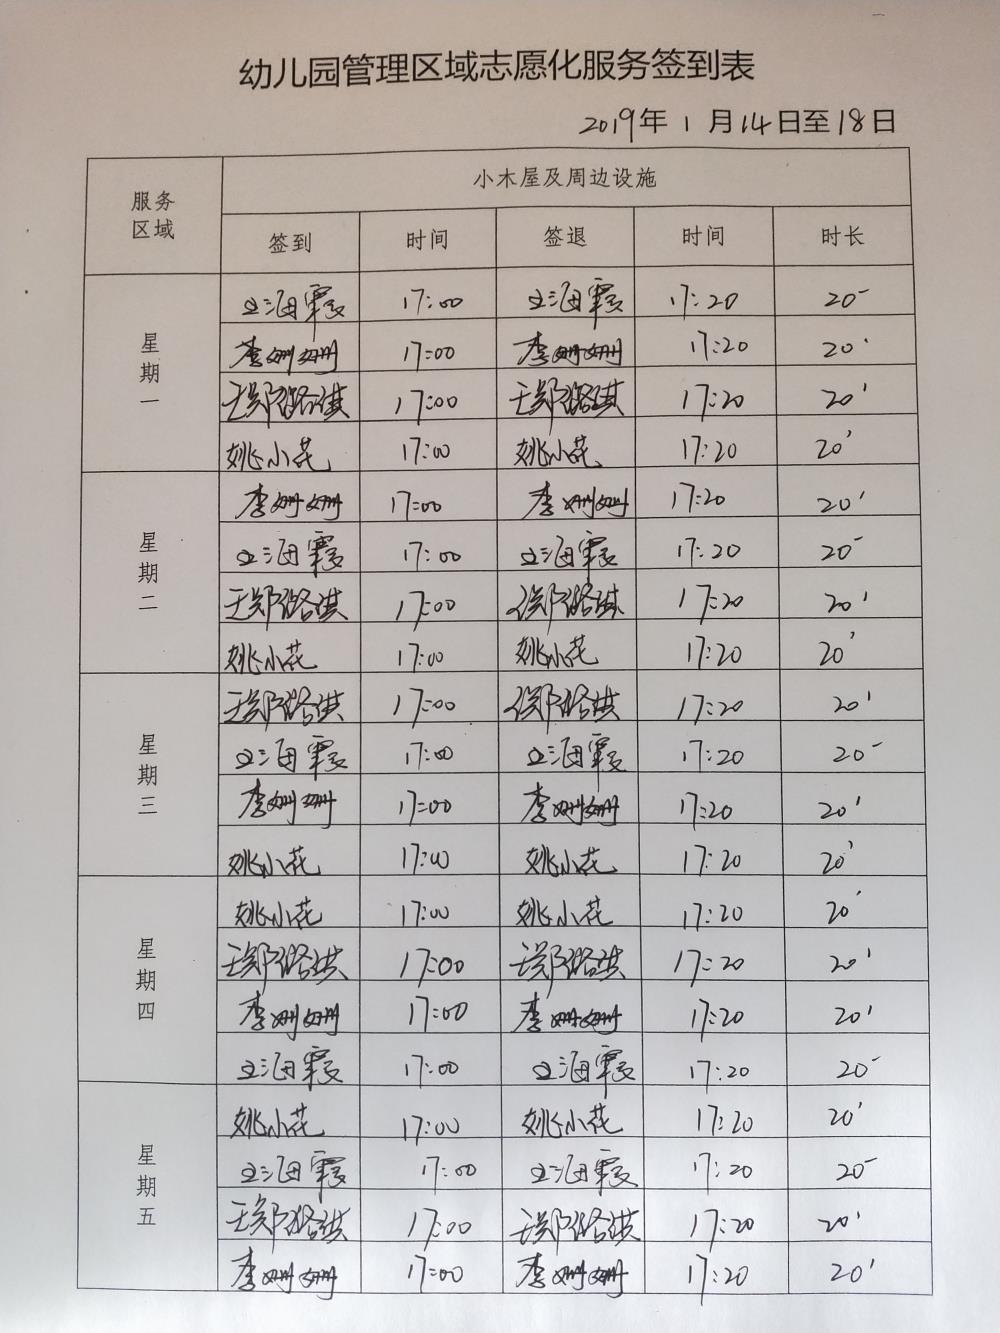 幼儿园管理区域志愿化服务签到表
2019年1月14日至18日
服务区域 小木屋及周边设施
签到 时间 签退 时间 时长
星期一
海霞 17:00 海霞 17:20 20'
李姗姗 17:00 李姗姗 17:20 20'
17:00 17:20 20'
姚小花 17:00 姚小花 17:20 20'
星期二
李姗姗 17:00 李姗姗 17:20 20'
海霞 17:00 海霞 17:20 20'
17:00 17:20 20'
姚小花 17:00 姚小花 17:20 20'
星期三
17:00 17:20 20'
海霞 17:00 海霞 17:20 20'
李姗姗 17:00 李姗姗 17:20 20'
姚小花 17:00 姚小花 17:20 20'
星期四
姚小花 17:00 姚小花 17:20 20'
17:00 17:20 20'
李姗姗 17:00 李姗姗 17:20 20'
海霞 17:00 海霞 17:20 20'
星期五
姚小花 17:00 姚小花 17:20 20'
海霞 17:00 海霞 17:20 20'
17:00 17:20 20'
李姗姗 17:00 李姗姗 17:20 20'